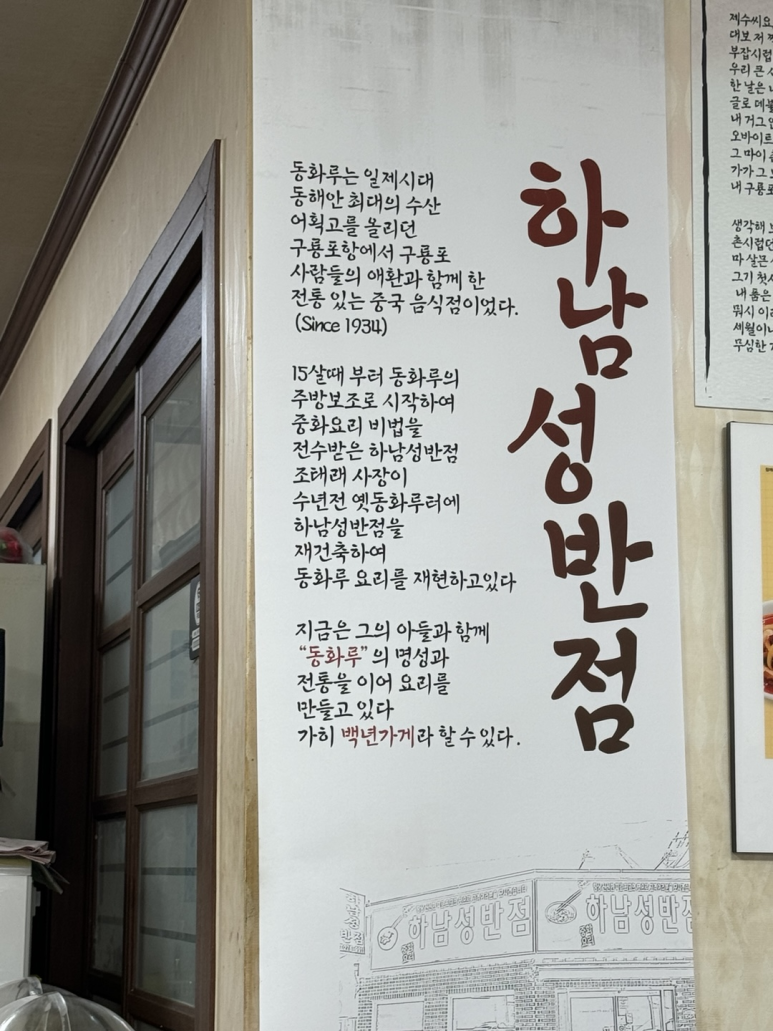 하남성반점
동화루는 일제시대
동해안 최대의 수산
어획고를 올리던
구룡포항에서 구룡포
사람들의 애환과 함께 한
전통 있는 중국 음식점이었다.
(Since 1934)
15살때 부터 동화루의
주방보조로 시작하여
중화요리 비법을
전수받은 하남성반점
조태래 사장이
수년전 옛동화루터에
하남성반점을
재건축하여
동화루 요리를 재현하고있다
지금은 그의 아들과 함께
“동화루” 의 명성과
전통을 이어 요리를
만들고 있다
가히 백년가게라 할 수 있다.
하남성반점
하남성반점
하남성반점
제수씨요
대보 저
부잡시럽
우리 큰
한 날은
글로 데불
내 거그
오바이트
그 마이
가가 그
내 구룡포
생각해
촌시럽던
따 살문
그기 첫
내 품은
뭐시 이리
세월이
무심한